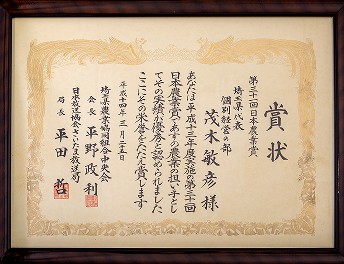 賞状
第三十一回日本農業賞
埼玉県代表
個別経営の部
茂木敏彦様
あなたは平成十三年度実施の第三十一回
日本農業賞であすの農業の担い手とし
てその実績が優秀と認められました
ここにその栄誉をたたえ賞します
平成十四年三月二十五日
埼玉県農業協同組合中央会
会長 平野政利
日本放送協会さいたま放送局
局長 平田哲